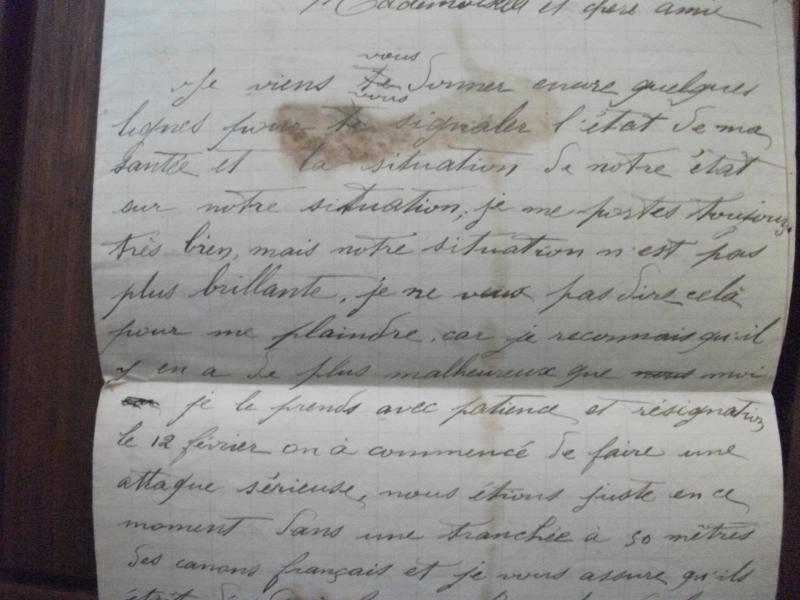 Mademoiselle et chere amie
vous
Je viens te donner encore quelques
vous
lignes pour te signaler l'état de ma
santée et la situation de notre état
sur notre situation, je me portes toujours
très bien, mais notre situation n'est pas
plus brillante, je ne veux pas dire celà
pour me plaindre, car je reconnais qu'il
y en a de plus malheureux que nous moi
je le prends avec patience et résignation
le 12 février on à commencé de faire une
attaque sérieuse, nous étions juste en ce
moment dans une tranchée à 50 mètres
des canons français et je vous assure qu'ils